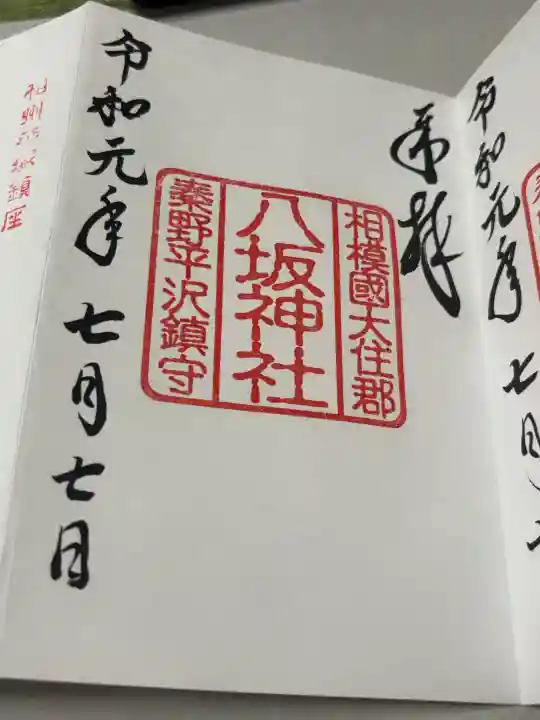 令和元年七
奉拝
相模國大住郡
八坂神社
秦野平沢鎮守
令和元年七月七日
鎮座